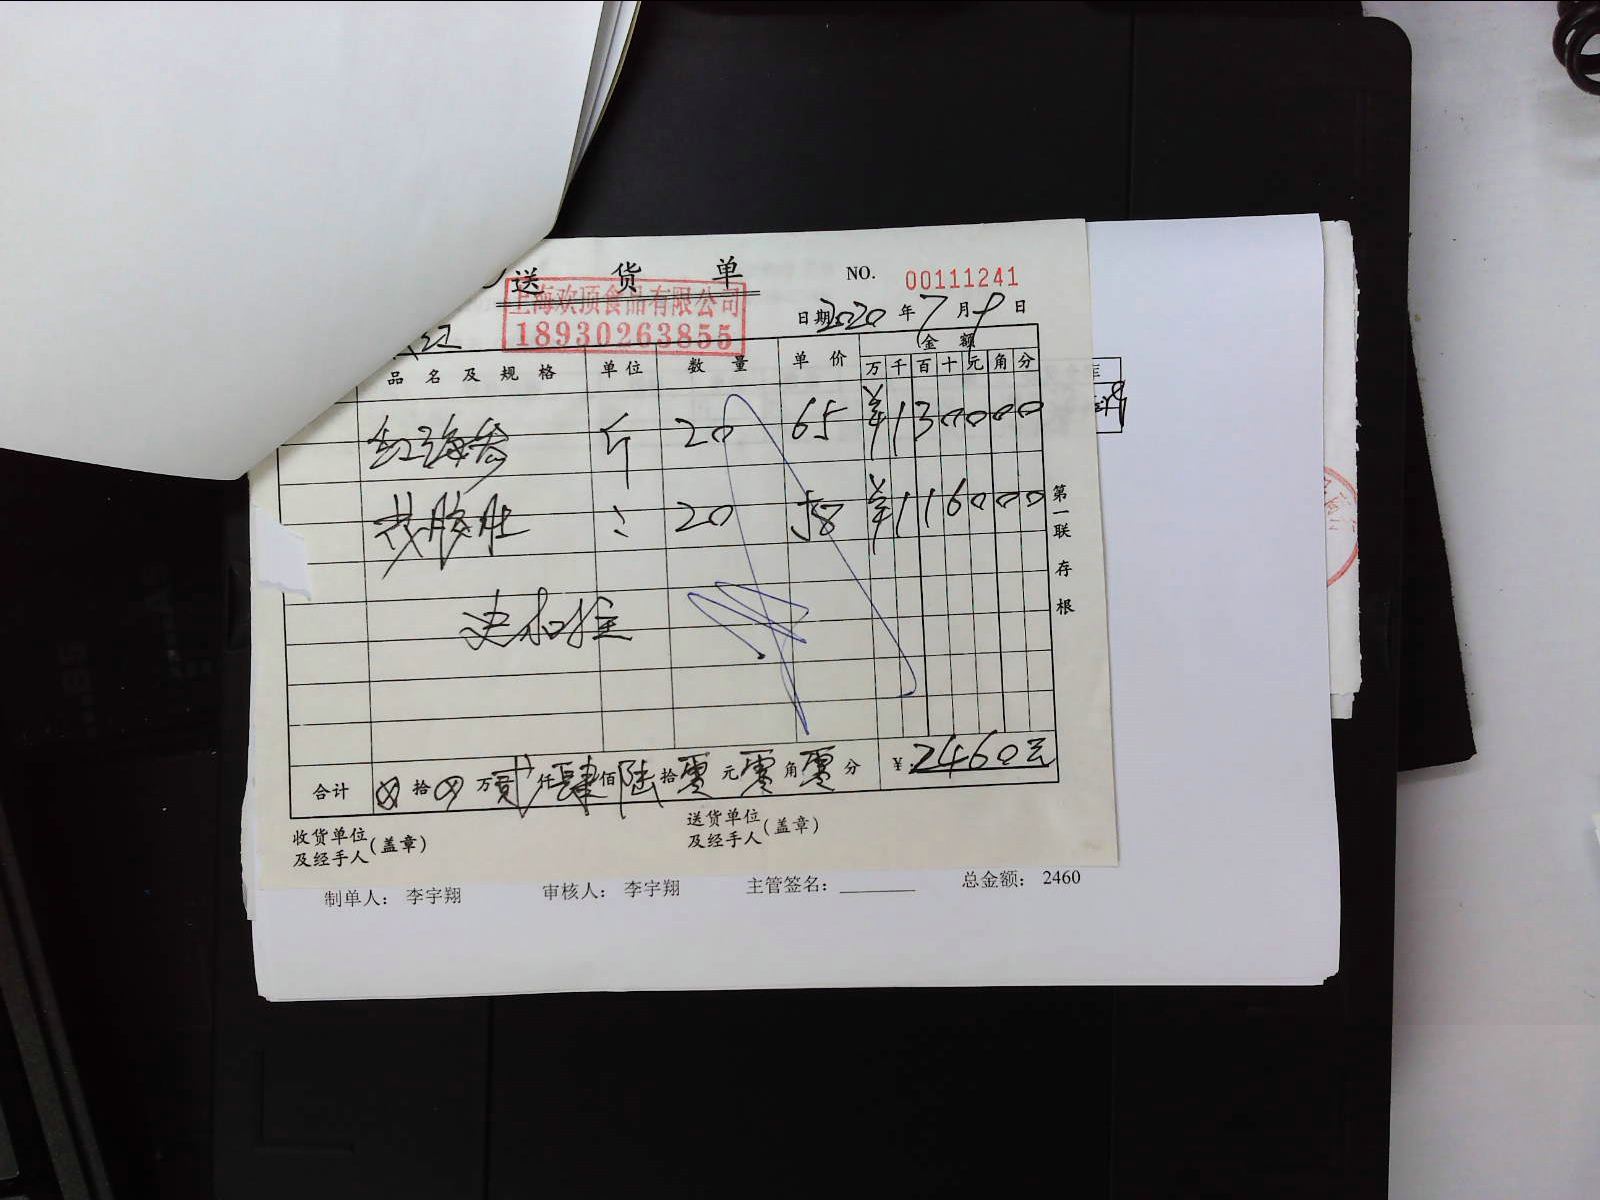 送 货 单 NO. 00111241
上海欢顶食品有限公司
18930263855
日期 2020 年 7 月 9 日
品 名 及 规 格 单位 数 量 单 价 金 额
万 千 百 十 元 角 分
红海参 斤 20 65 ¥130000
20 58 ¥116000
第一联 存根
合计 拾 万 贰 仟 肆 佰 陆 拾 零 元 零 角 零 分 ¥:2460元
收货单位及经手人(盖章) 送货单位及经手人(盖章)
制单人: 李宇翔 审核人: 李宇翔 主管签名: 总金额: 2460